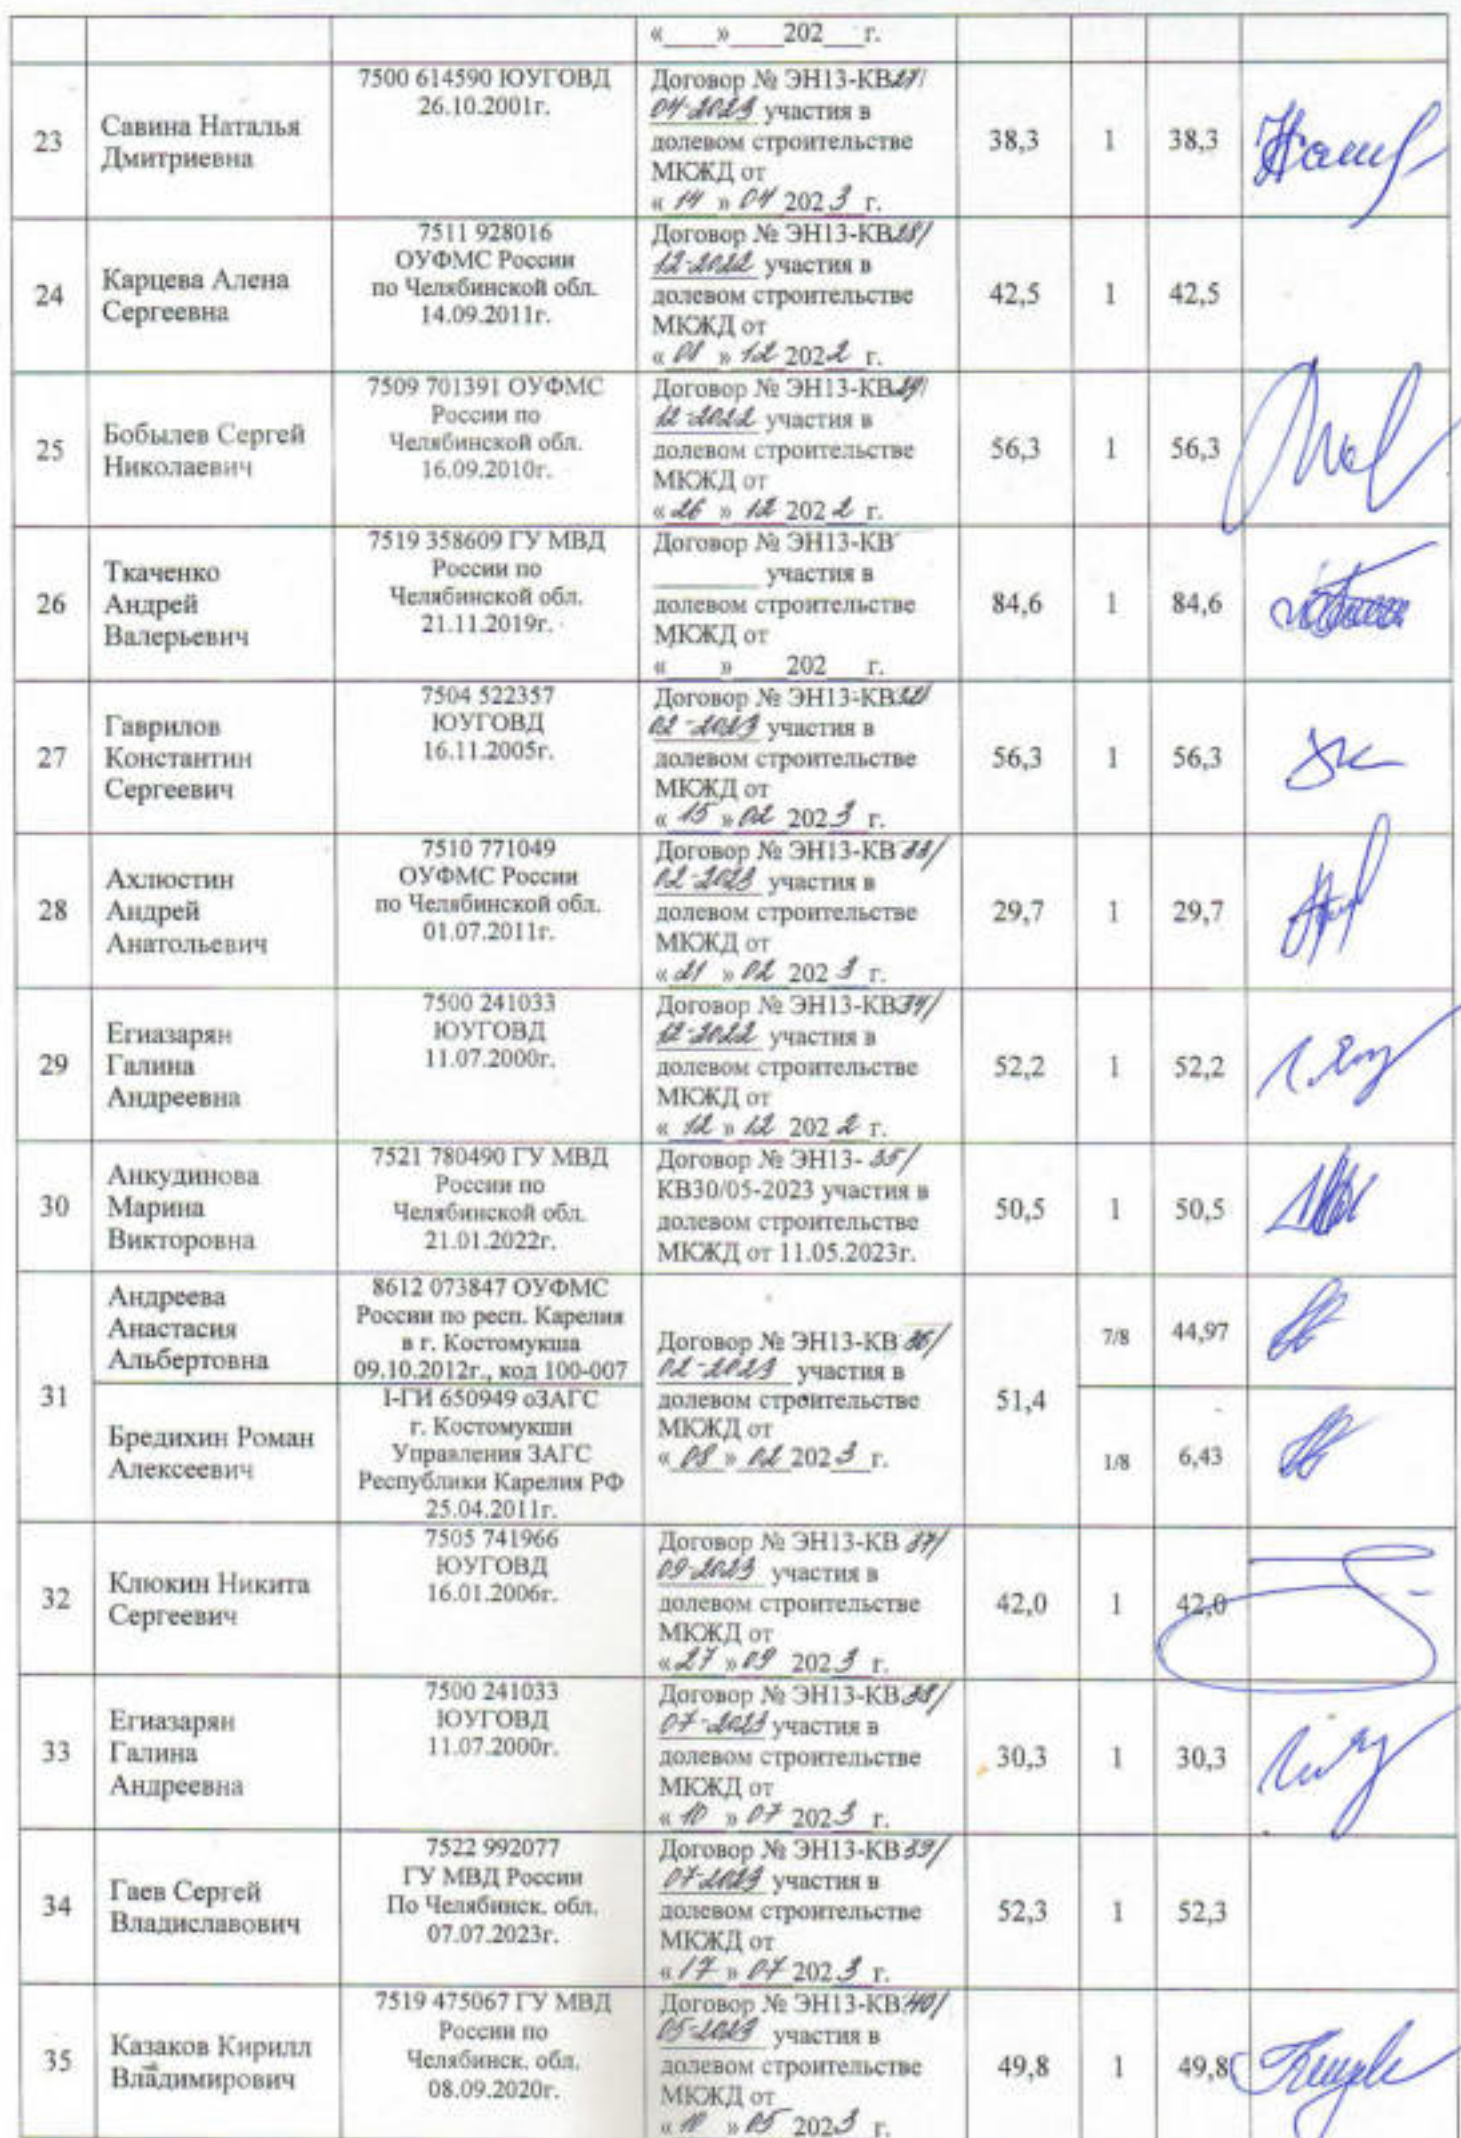 «____»____202___г.
23
Савина Наталья
Дмитриевна
7500 614590 ЮУГОВД
26.10.2001г.
Договор № ЭН13-КВ27/
04-2023 участия в
долевом строительстве
МКЖД от
« 14 » 04 2023 г.
38,3
1
38,3
24
Карцева Алена
Сергеевна
7511 928016
ОУФМС России
по Челябинской обл.
14.09.2011г.
Договор № ЭН13-КВ28/
12-2022 участия в
долевом строительстве
МКЖД от
« 08 » 12 2022 г.
42,5
1
42,5
25
Бобылев Сергей
Николаевич
7509 701391 ОУФМС
России по
Челябинской обл.
16.09.2010г.
Договор № ЭН13-КВ29/
12-2022 участия в
долевом строительстве
МКЖД от
« 26 » 12 2022 г.
56,3
1
56,3
26
Ткаченко
Андрей
Валерьевич
7519 358609 ГУ МВД
России по
Челябинской обл.
21.11.2019г.
Договор № ЭН13-КВ
________ участия в
долевом строительстве
МКЖД от
«____»____202___г.
84,6
1
84,6
27
Гаврилов
Константин
Сергеевич
7504 522357
ЮУГОВД
16.11.2005г.
Договор № ЭН13-КВ32/
02-2023 участия в
долевом строительстве
МКЖД от
« 15 » 02 2023 г.
56,3
1
56,3
28
Ахлюстин
Андрей
Анатольевич
7510 771049
ОУФМС России
по Челябинской обл.
01.07.2011г.
Договор № ЭН13-КВ 33/
02-2023 участия в
долевом строительстве
МКЖД от
« 21 » 02 2023 г.
29,7
1
29,7
29
Егиазарян
Галина
Андреевна
7500 241033
ЮУГОВД
11.07.2000г.
Договор № ЭН13-КВ34/
12-2022 участия в
долевом строительстве
МКЖД от
« 12 » 12 2022 г.
52,2
1
52,2
30
Анкудинова
Марина
Викторовна
7521 780490 ГУ МВД
России по
Челябинской обл.
21.01.2022г.
Договор № ЭН13- 35/
КВ30/05-2023 участия в
долевом строительстве
МКЖД от 11.05.2023г.
50,5
1
50,5
31
Андреева
Анастасия
Альбертовна
8612 073847 ОУФМС
России по респ. Карелия
в г. Костомукша
09.10.2012г., код 100-007
Договор № ЭН13-КВ 36/
02-2023 участия в
долевом строительстве
МКЖД от
« 08 » 02 2023 г.
51,4
7/8
44,97
Бредихин Роман
Алексеевич
I-ГИ 650949 оЗАГС
г. Костомукши
Управления ЗАГС
Республики Карелия РФ
25.04.2011г.
1/8
6,43
32
Клюкин Никита
Сергеевич
7505 741966
ЮУГОВД
16.01.2006г.
Договор № ЭН13-КВ 37/
09-2023 участия в
долевом строительстве
МКЖД от
« 27 » 09 2023 г.
42,0
1
42,0
33
Егиазарян
Галина
Андреевна
7500 241033
ЮУГОВД
11.07.2000г.
Договор № ЭН13-КВ38/
07-2023 участия в
долевом строительстве
МКЖД от
« 10 » 07 2023 г.
30,3
1
30,3
34
Гаев Сергей
Владиславович
7522 992077
ГУ МВД России
По Челябинск. обл.
07.07.2023г.
Договор № ЭН13-КВ39/
07-2023 участия в
долевом строительстве
МКЖД от
« 17 » 07 2023 г.
52,3
1
52,3
35
Казаков Кирилл
Владимирович
7519 475067 ГУ МВД
России по
Челябинск. обл.
08.09.2020г.
Договор № ЭН13-КВ40/
05-2023 участия в
долевом строительстве
МКЖД от
« 10 » 05 2023 г.
49,8
1
49,8